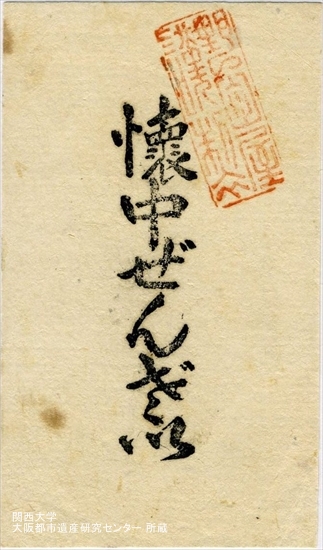 懐中ぜんざい
関西大学
大阪都市遺産研究センター 所蔵